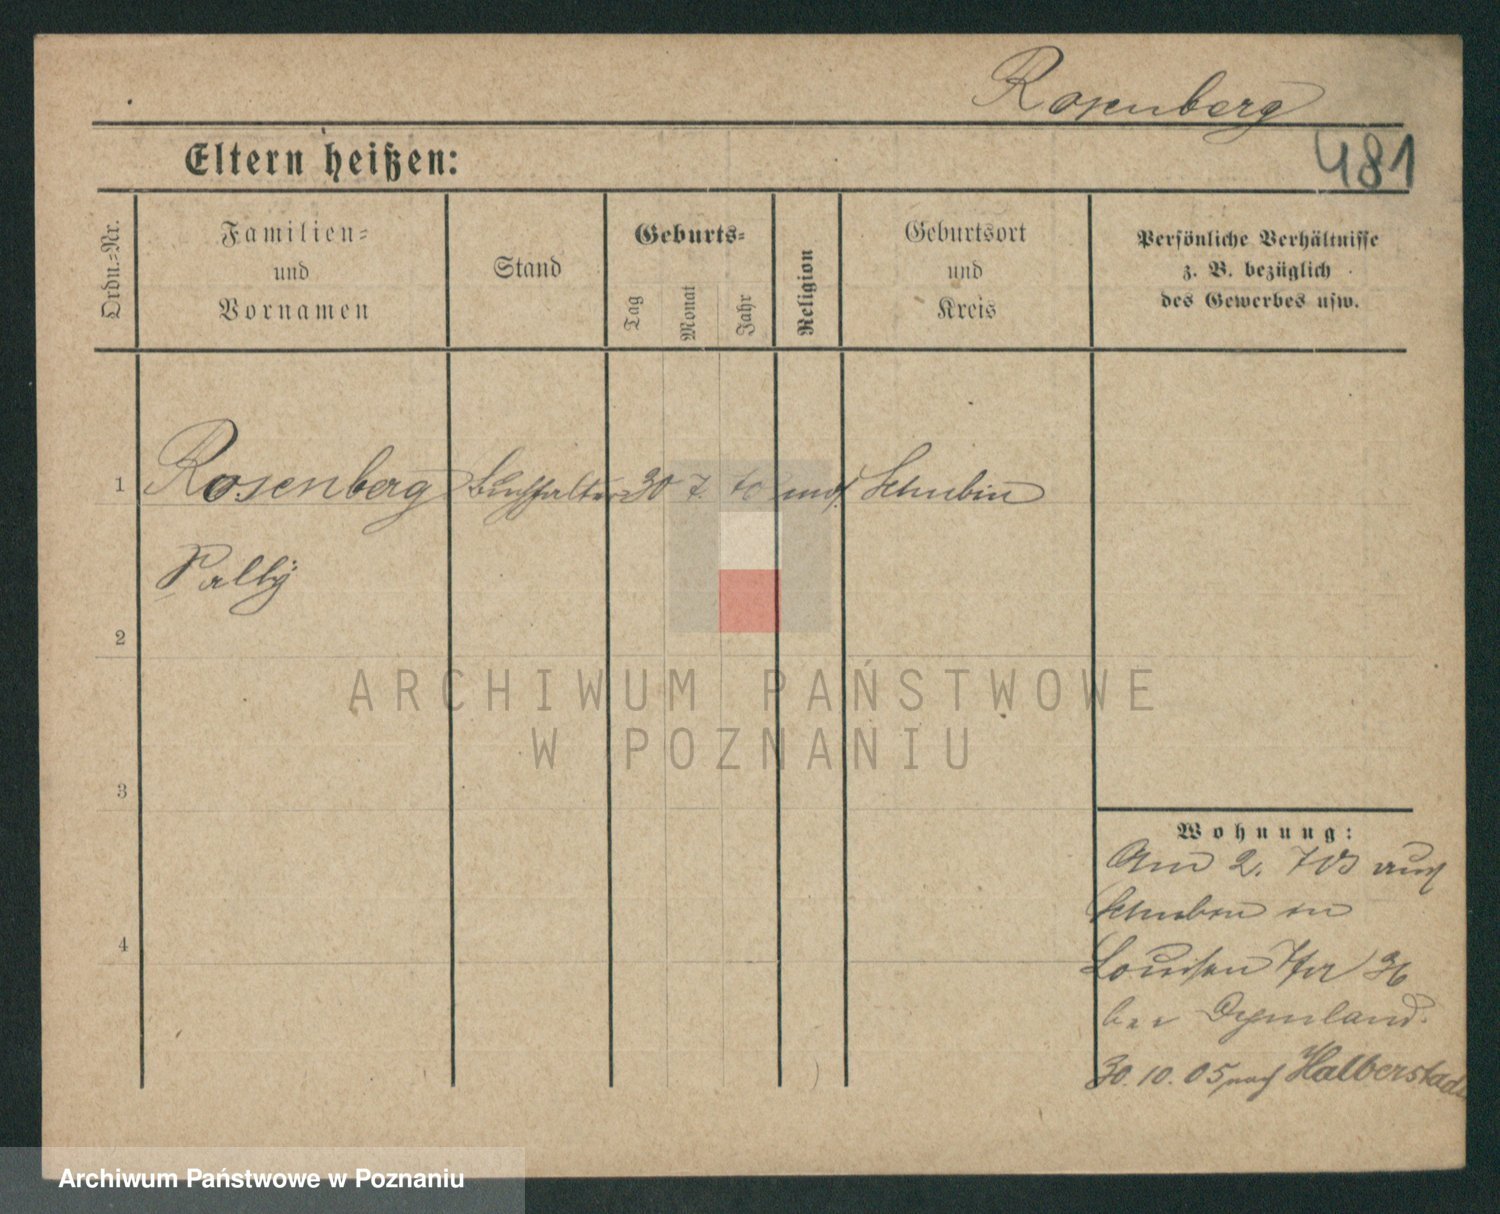 Rosenberg
481
Eltern heißen:
Ordn.-Nr.
Familien-
und
Vornamen
Stand
Geburts-
Tag
Monat
Jahr
Religion
Geburtsort
und
Kreis
Persönliche Verhältnisse
z. B. bezüglich
des Gewerbes usw.
1 Rosenberg Buchhalter 30 7. mos. Schubin
2
3
4
Wohnung:
Am 2. 7 05 aus
Schubin in
Louisenstr 36
bei
30. 10. 05 nach Halberstadt
ARCHIWUM PAŃSTWOWE
W POZNANIU
Archiwum Państwowe w Poznaniu